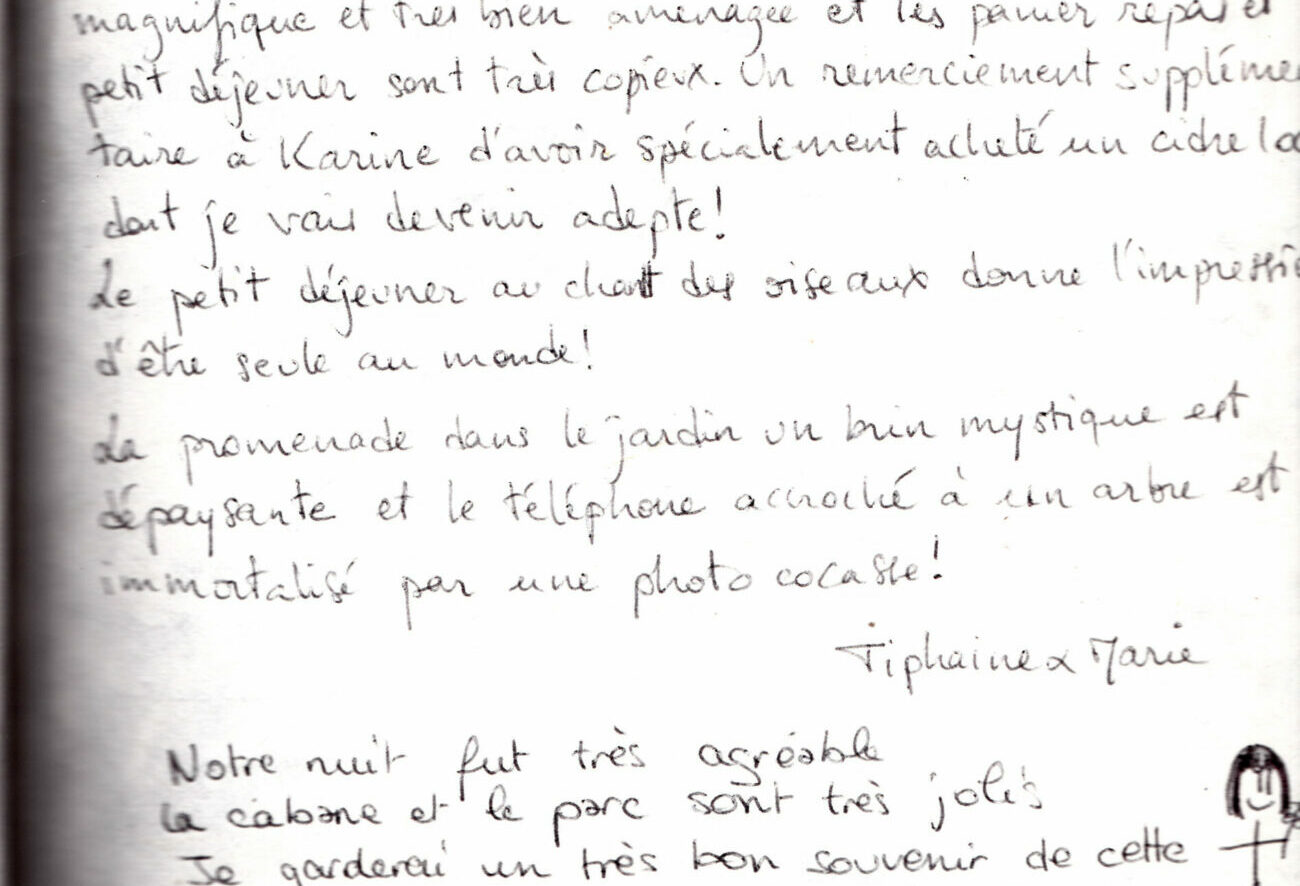 magnifique et très bien aménagée et les panier repas et
petit déjeuner sont très copieux. Un remerciement supplémen
taire à Karine d'avoir spécialement acheté un cidre
dont je vais devenir adepte!
Le petit déjeuner au chant des oiseaux donne l'impressi
d'être seule au monde!
La promenade dans le jardin un brin mystique est
dépaysante et le téléphone accroché à un arbre est
immortalisé par une photo cocasse!
Tiphaine & Marie
Notre nuit fut très agréable
la cabane et le parc sont très jolis
Je garderai un très bon souvenir de cette